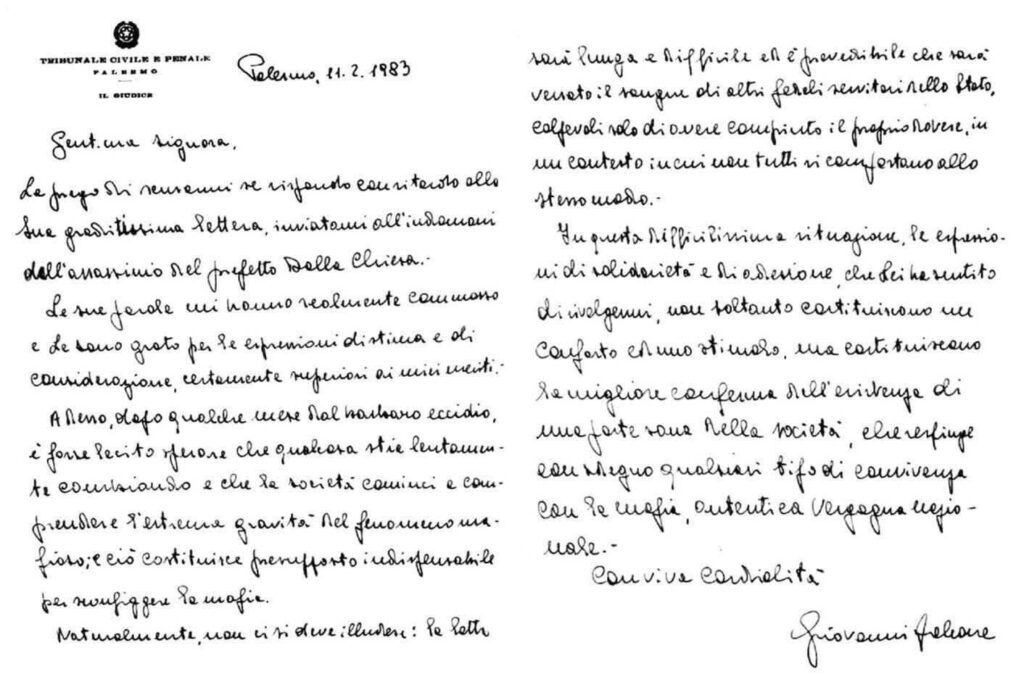 TRIBUNALE CIVILE E PENALE
PALERMO
IL GIUDICE
Palermo, 11.2.1983
Gent.ma Signora,
La prego di scusarmi se rispondo con ritardo alla
Sua graditissima lettera, inviatami all'indomani
dell'assassinio del prefetto Dalla Chiesa.-
Le sue parole mi hanno realmente commosso
e Le sono grato per le espressioni di stima e di
considerazione, certamente superiori ai miei meriti.-
Adesso, dopo qualche mese dal barbaro eccidio,
è forse lecito sperare che qualcosa stia lentamen-
te cambiando e che la società cominci a com-
prendere l'estrema gravità del fenomeno ma-
fioso; e ciò costituisce presupposto indispensabile
per sconfiggere la mafia.
Naturalmente, non ci si deve illudere: la lotta
sarà lunga e difficile ed è prevedibile che sarà
versato il sangue di altri fedeli servitori dello Stato,
colpevoli solo di avere compiuto il proprio dovere, in
un contesto in cui non tutti si comportano allo
stesso modo.-
In questa difficilissima situazione, le espressio-
ni di solidarietà e di adesione, che Lei ha sentito
di rivolgermi, non soltanto costituiscono un
conforto ed uno stimolo, ma costituiscono
la migliore conferma dell'esistenza di
una parte sana della società, che respinge
con sdegno qualsiasi tipo di convivenza
con la mafia, autentica vergogna nazio-
nale.-
Con viva cordialità
Giovanni Falcone